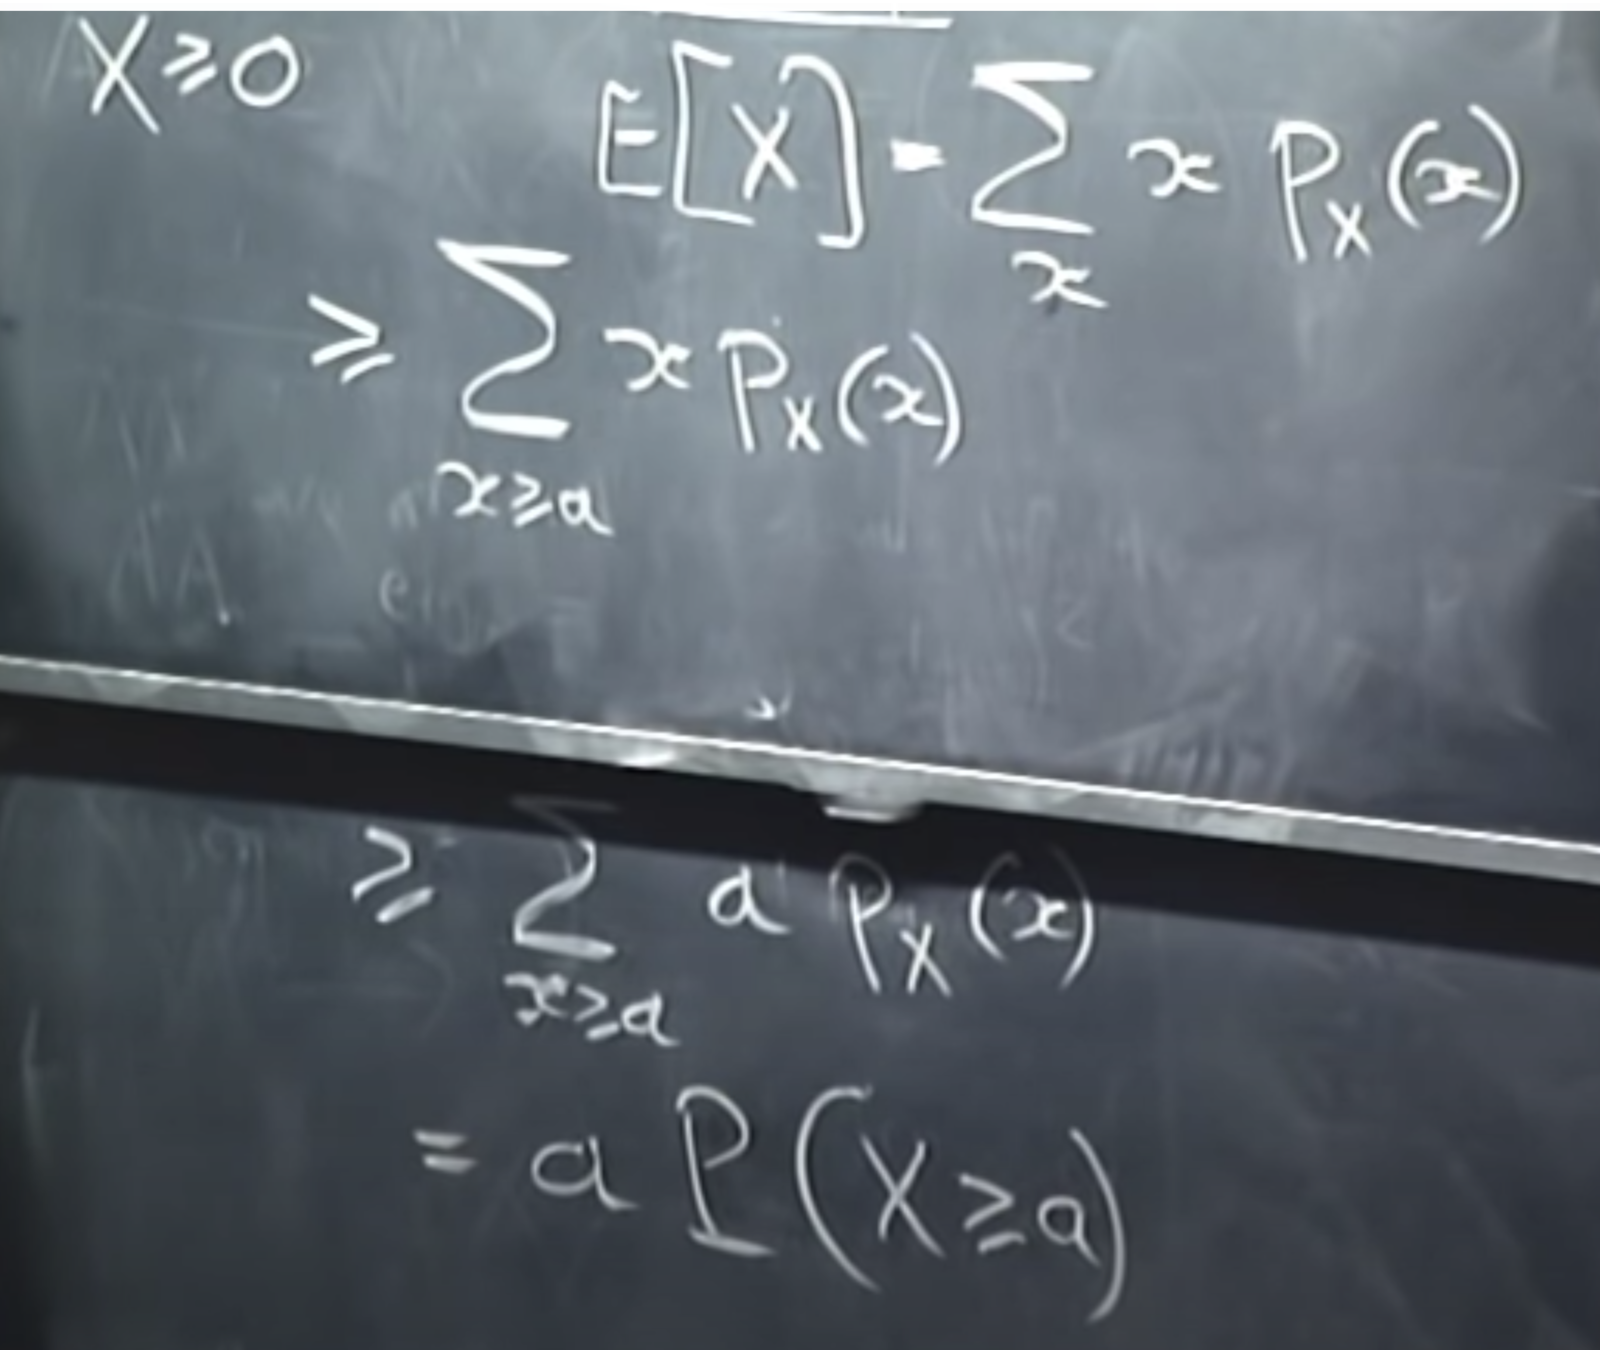 X ≥ 0
E[X] = ∑_x x p_X(x)
≥ ∑_{x≥a} x p_X(x)
≥ ∑_{x≥a} a p_X(x)
= a P(X ≥ a)